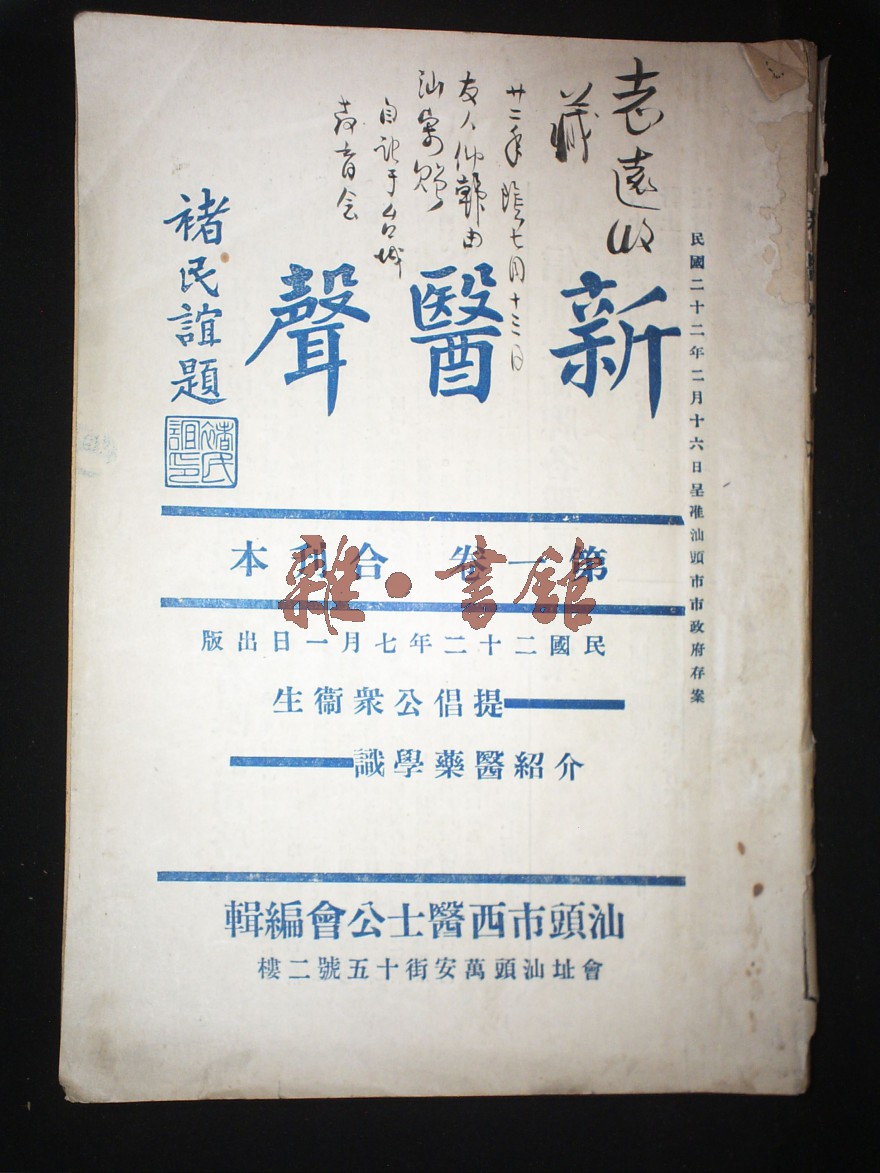 民國二十二年二月十六日呈准汕頭市市政府存案
藏
廿二年陰七月十三日
友人仲韓由
汕寄贈
自記于台城
新醫聲
褚民誼題
褚民誼印
第一卷 合刊本
雜·書館
民國二十二年七月一日出版
提倡公衆衞生
介紹醫藥學識
汕頭市西醫士公會編輯
會址汕頭萬安街十五號二樓